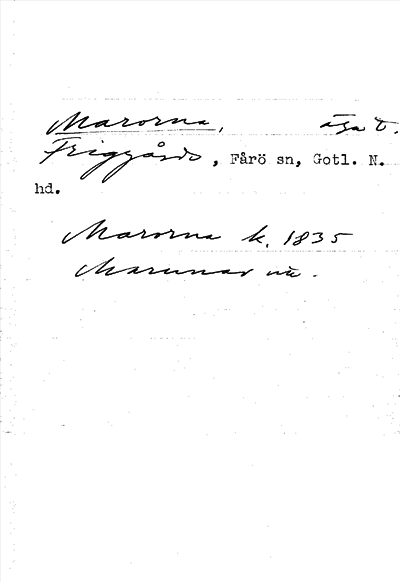 Marorna, äga t.
Friggårds, Fårö sn, Gotl. N.
hd.
Marorna k. 1835
Marunar nu.